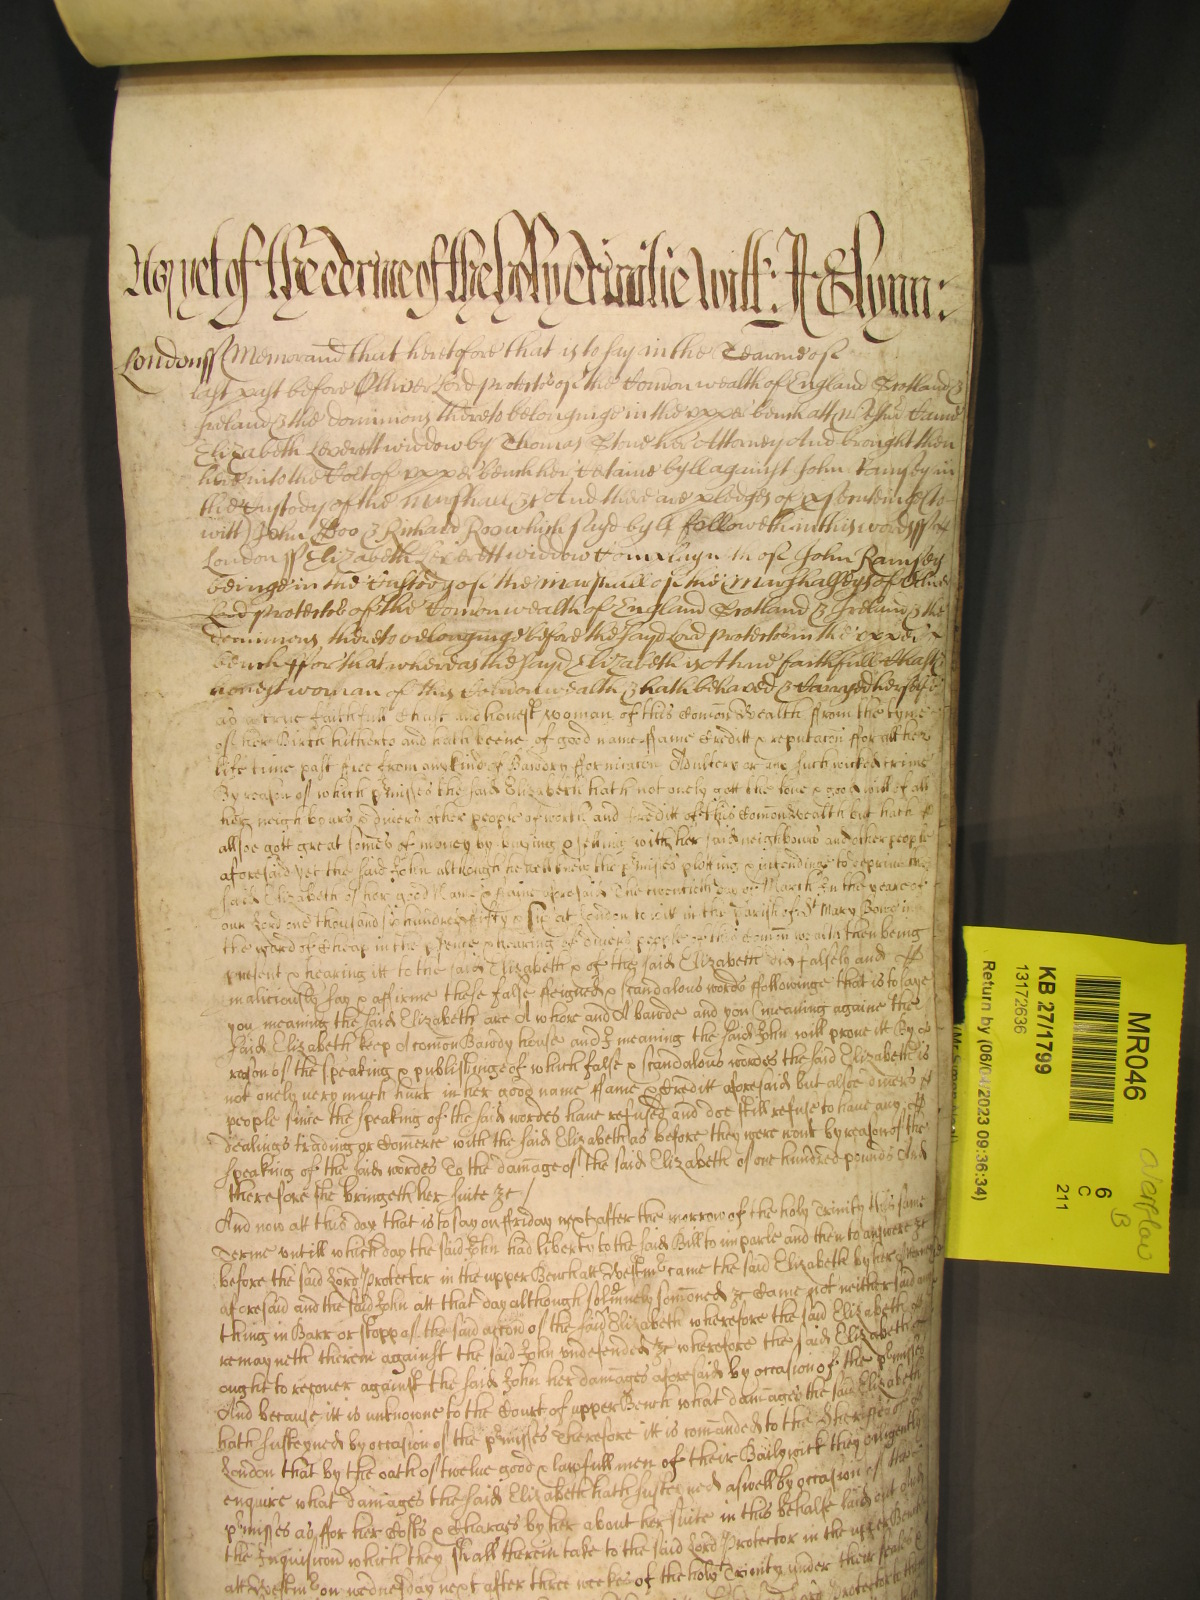 As yet of the terme of the holy Trinitie Witt:
London ss Memorand that heretofore that is to say in the Tearme of
last past before Oliver Lord Protector of the Comonwealth of England Scotland &
Ireland & the dominions thereto belonginge in the upper bench att Westmr Came
Elizabeth Leverett widdow by Thomas Stone her Attorney And brought then
here into the Cort of upper bench her Certaine byll against John Ramsey in
the Custody of the Marshall &c And there are pledges of prosecutinge (to
witt) John Doo & Richard Roo which sayd byll followeth in this words ss
London ss Elizabeth Leverett widdow Complayneth of John Ramsey
beinge in the Custody of the Marshall of the Marshallsey of Oliver
Lord protector of the Comonwealth of England Scotland & Ireland & the
dominions thereto belonginge before the sayd Lord protector in the upper
bench ffor that whereas the sayd Elizabeth is A true faithfull Chast &
honest woman of this Comonwealth & hath behaved & Carryed herselfe
as a true faithfull Chast and honest woman of this Comonwealth from the tyme
of her Birth hitherto and hath beene of good name ffame Creditt & reputacon ffor all her
life time past free from any kind of Bawdry fornicacon Adultery or any such wicked crime
By reason of which pmisses the said Elizabeth hath not onely gott the love & good will of all
her neighbours & divers other people of worth and Creditt of this Comonwealth but hath
allsoe gott great somes of money by buying & selling with her said neighbours and other people
aforesaid yet the said John although he well knew the pmises plotting & intendinge to deprive the
said Elizabeth of her good Name & fame aforesaid The twentieth day of March In the yeare of
our Lord one thousand six hundred fifty & six at London to witt in the Parish of St Mary Bowe in
the ward of Cheap in the psence & hearing of divers people of this Comonwealth then being
present & hearing itt to the said Elizabeth & of the said Elizabeth did falsely and
maliciously say & affirme these false ffeigned & scandalous words followinge that is to saye
you meaning the said Elizabeth are A whore and A bawde and you meaning againe the
said Elizabeth keep A comon Bawdy house and I meaning the said John will prove itt By
reason of the speaking & publishinge of which false & scandalous wordes the said Elizabeth is
not onely very much hurt in her good name ffame & Creditt aforesaid but alsoe divers
people since the speaking of the said wordes have refused and doe still refuse to have any
dealings trading or Comerce with the said Elizabeth as before they were wont by reason of the
speaking of the said wordes To the damage of the said Elizabeth of one hundred pounds And
therefore she bringeth her suite &c /
And now att this day that is to say on ffriday next after the morrow of the holy Trinity this same
Terme untill which day the said John had liberty to the said Bill to imparle and then to answere &c
before the said Lord Protector in the upper Bench att Westmr came the said Elizabeth by her Attorney
aforesaid and the said John att that day although solmnely somoned &c Came not neither said any
thing in Barr or stopp as the said accon of the said Elizabeth wherefore the said Elizabeth
remayneth therein against the said John undefended &c wherefore the said Elizabeth
ought to recover against the said John her damages aforesaid by occasion of the pmisses
And because itt is unknowne to the Court of upper Bench what damages the said Elizabeth
hath susteyned by occasion of the pmisses Therefore itt is comanded to the Sheriffes of
London that by the oath of twelve good & lawfull men of their Bailywick they diligently
enquire what damages the said Elizabeth hath susteyned aswell by occasion of the
pmisses as ffor her Costs & Charges by her about her suite in this behalfe laid out and
the Inquisicon which they shall therein take to the said Lord Protector in the upper Bench
att Westmr on wednesday next after three weekes of the holy Trinity under their seales &
MR046
KB 27/1799
13172636
Return by (06/04/2023 09:36:34)
6
C
211
overflow
B